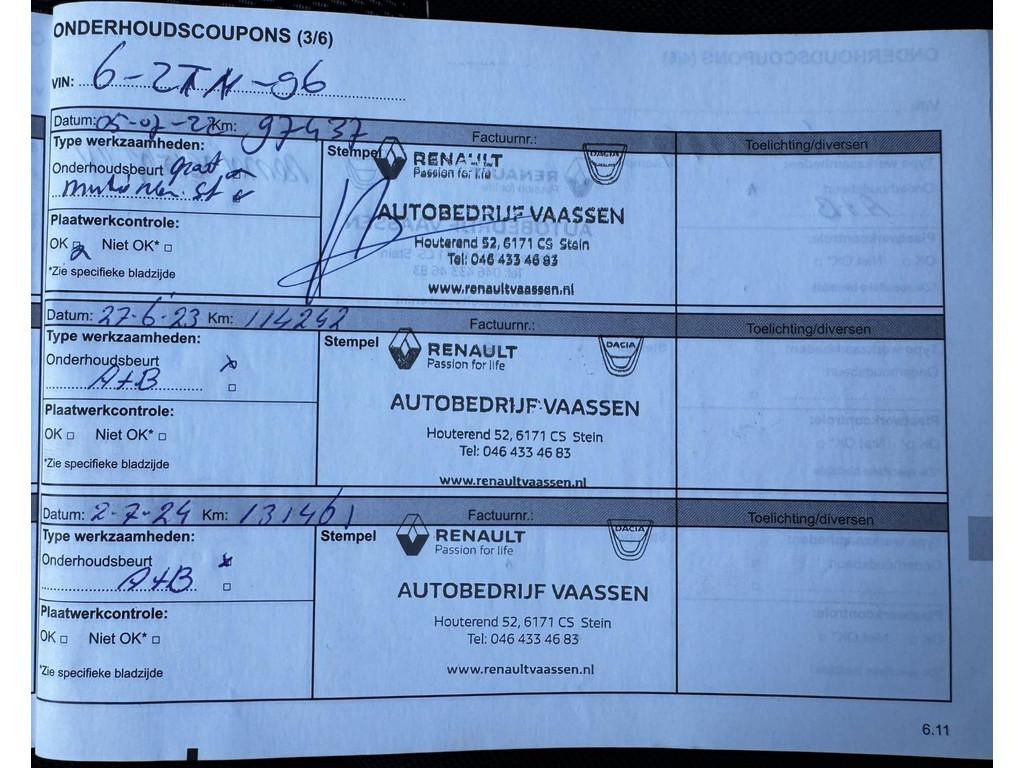 ONDERHOUDSCOUPONS (3/6)
VIN: 6-ZTN-96
Datum: 05-07-22 Km: 97437 Factuurnr.: Toelichting/diversen
Type werkzaamheden:
Stempel
RENAULT
Passion for life
DACIA
Onderhoudsbeurt groot
AUTOBEDRIJF VAASSEN
Plaatwerkcontrole:
OK Niet OK*
Houterend 52, 6171 CS Stein
Tel: 046 433 46 83
*Zie specifieke bladzijde
www.renaultvaassen.nl
Datum: 27-6-23 Km: 114242 Factuurnr.: Toelichting/diversen
Type werkzaamheden:
Stempel
RENAULT
Passion for life
DACIA
Onderhoudsbeurt x
A+B
AUTOBEDRIJF VAASSEN
Plaatwerkcontrole:
OK Niet OK*
Houterend 52, 6171 CS Stein
Tel: 046 433 46 83
*Zie specifieke bladzijde
www.renaultvaassen.nl
Datum: 2-7-24 Km: 131461 Factuurnr.: Toelichting/diversen
Type werkzaamheden:
Stempel
RENAULT
Passion for life
DACIA
Onderhoudsbeurt x
A+B
AUTOBEDRIJF VAASSEN
Plaatwerkcontrole:
OK Niet OK*
Houterend 52, 6171 CS Stein
Tel: 046 433 46 83
*Zie specifieke bladzijde
www.renaultvaassen.nl
6.11